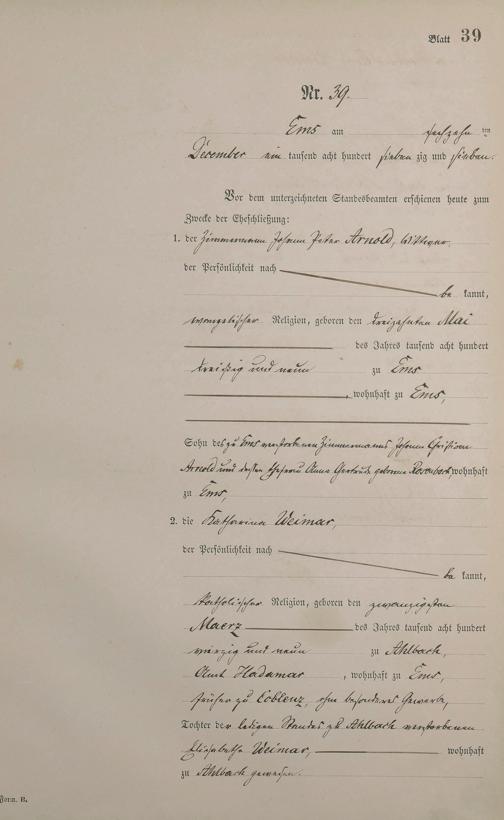 Blatt 39
Nr. 39.
Ems am sechzehn ten
December ein tausend acht hundert sieben zig und sieben.
Vor dem unterzeichneten Standesbeamten erschienen heute zum
Zwecke der Eheschließung:
1. der Zimmermann Johann Peter Arnold, Wittwer,
der Persönlichkeit nach
be kannt,
evangelischer Religion, geboren den dreizehnten Mai
des Jahres tausend acht hundert
dreißig und neun zu Ems
, wohnhaft zu Ems,
Sohn des zu Ems verstorbenen Zimmermanns Johann Christian
Arnold und dessen Ehefrau Anna Gertrude geborne wohnhaft
zu Ems,
2. die Katharina Weimar,
der Persönlichkeit nach
be kannt,
katholischer Religion, geboren den zwanzigsten
Maerz des Jahres tausend acht hundert
vierzig und neun zu Ahlbach,
Amt Hadamar, wohnhaft zu Ems,
früher zu Coblenz, ohne besonderes Gewerbe,
Tochter der ledigen Standes zu Ahlbach verstorbenen
Elisabetha Weimar, wohnhaft
zu Ahlbach gewesen.
Form. B.